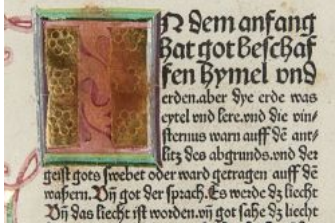 IN dem anfang
hat got beschaf
fen hymel vnd
erden.aber dye erde was
eytel vnd lere.vnd die vin-
sternus warn auff dē ant-
litz des abgrunds.vnd der
geist gots swebet oder ward getragen auff dē
waßern.Vn̄ got der sprach.Es werde dz liecht
Vn̄ das liecht ist worden.vn̄ got sahe dz liecht